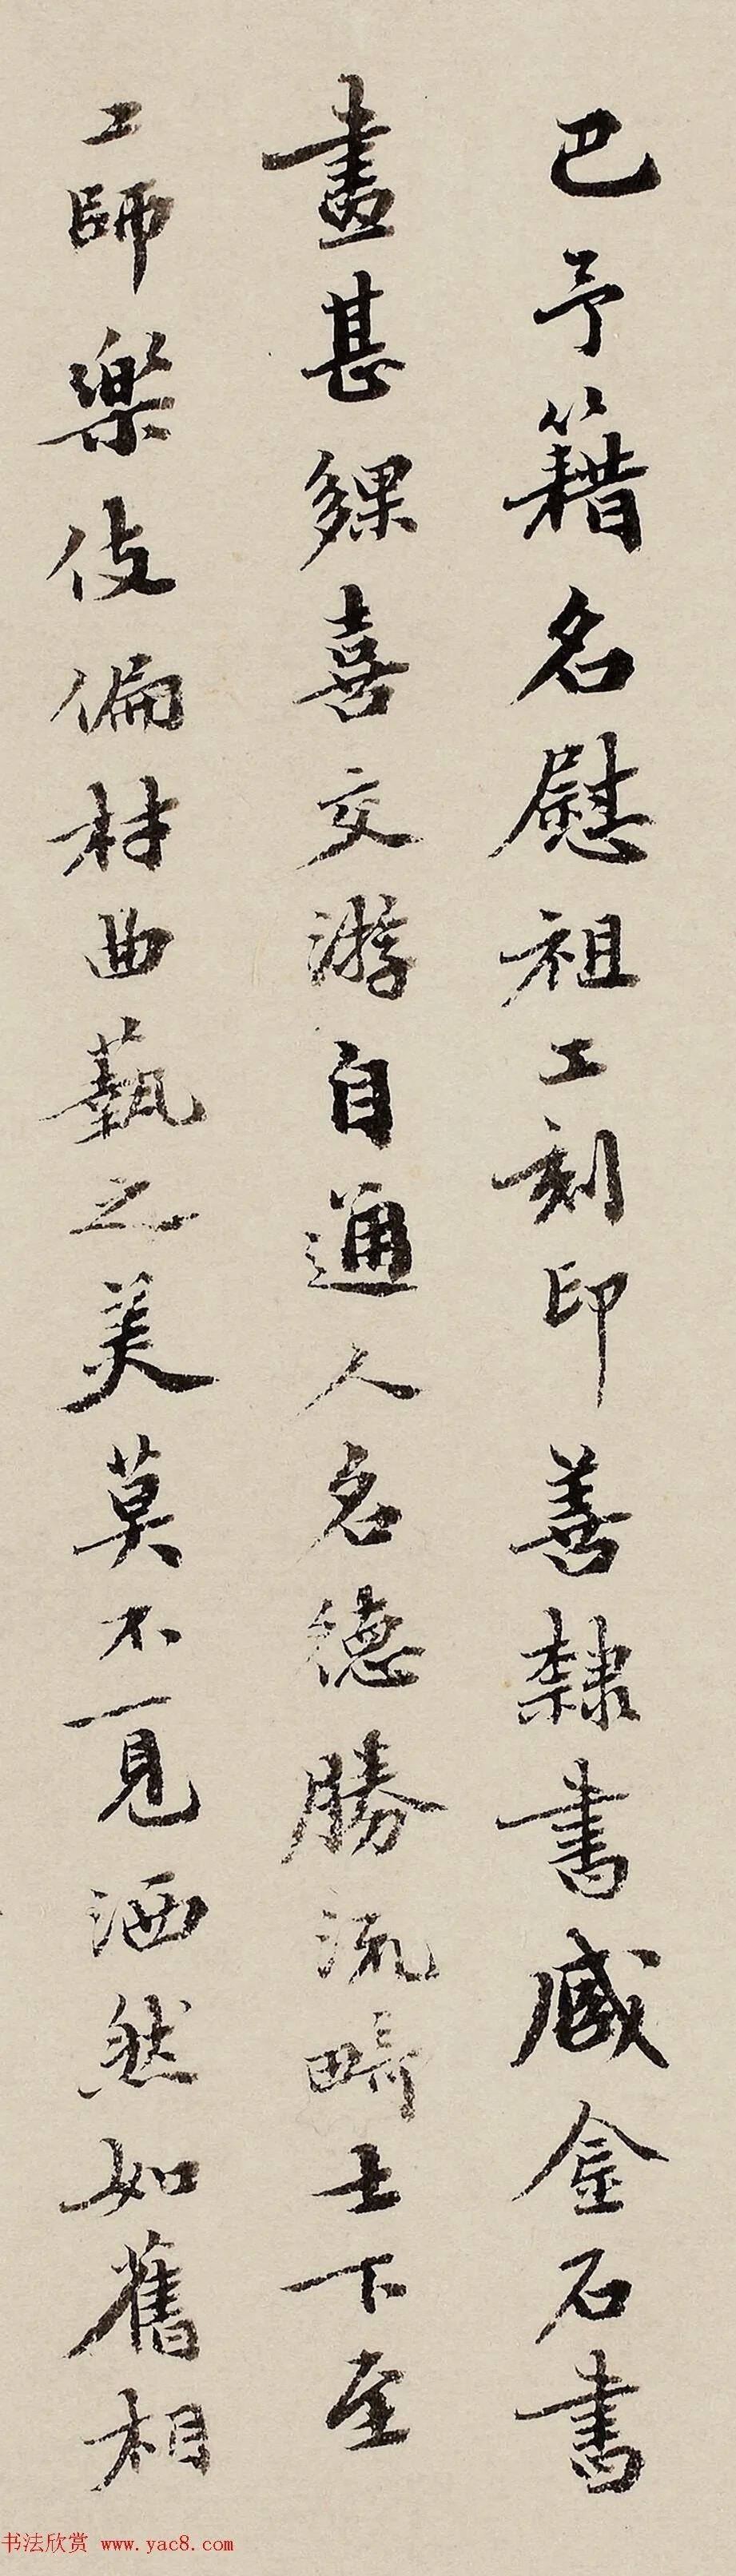 巴予籍名慰祖工刻印善隸書臧金石書
畫甚夥喜交游自通人名德勝流畸士下至
工師樂伎偏材曲藝之美莫不一見洒然如舊相
书法欣赏 www.yac8.com